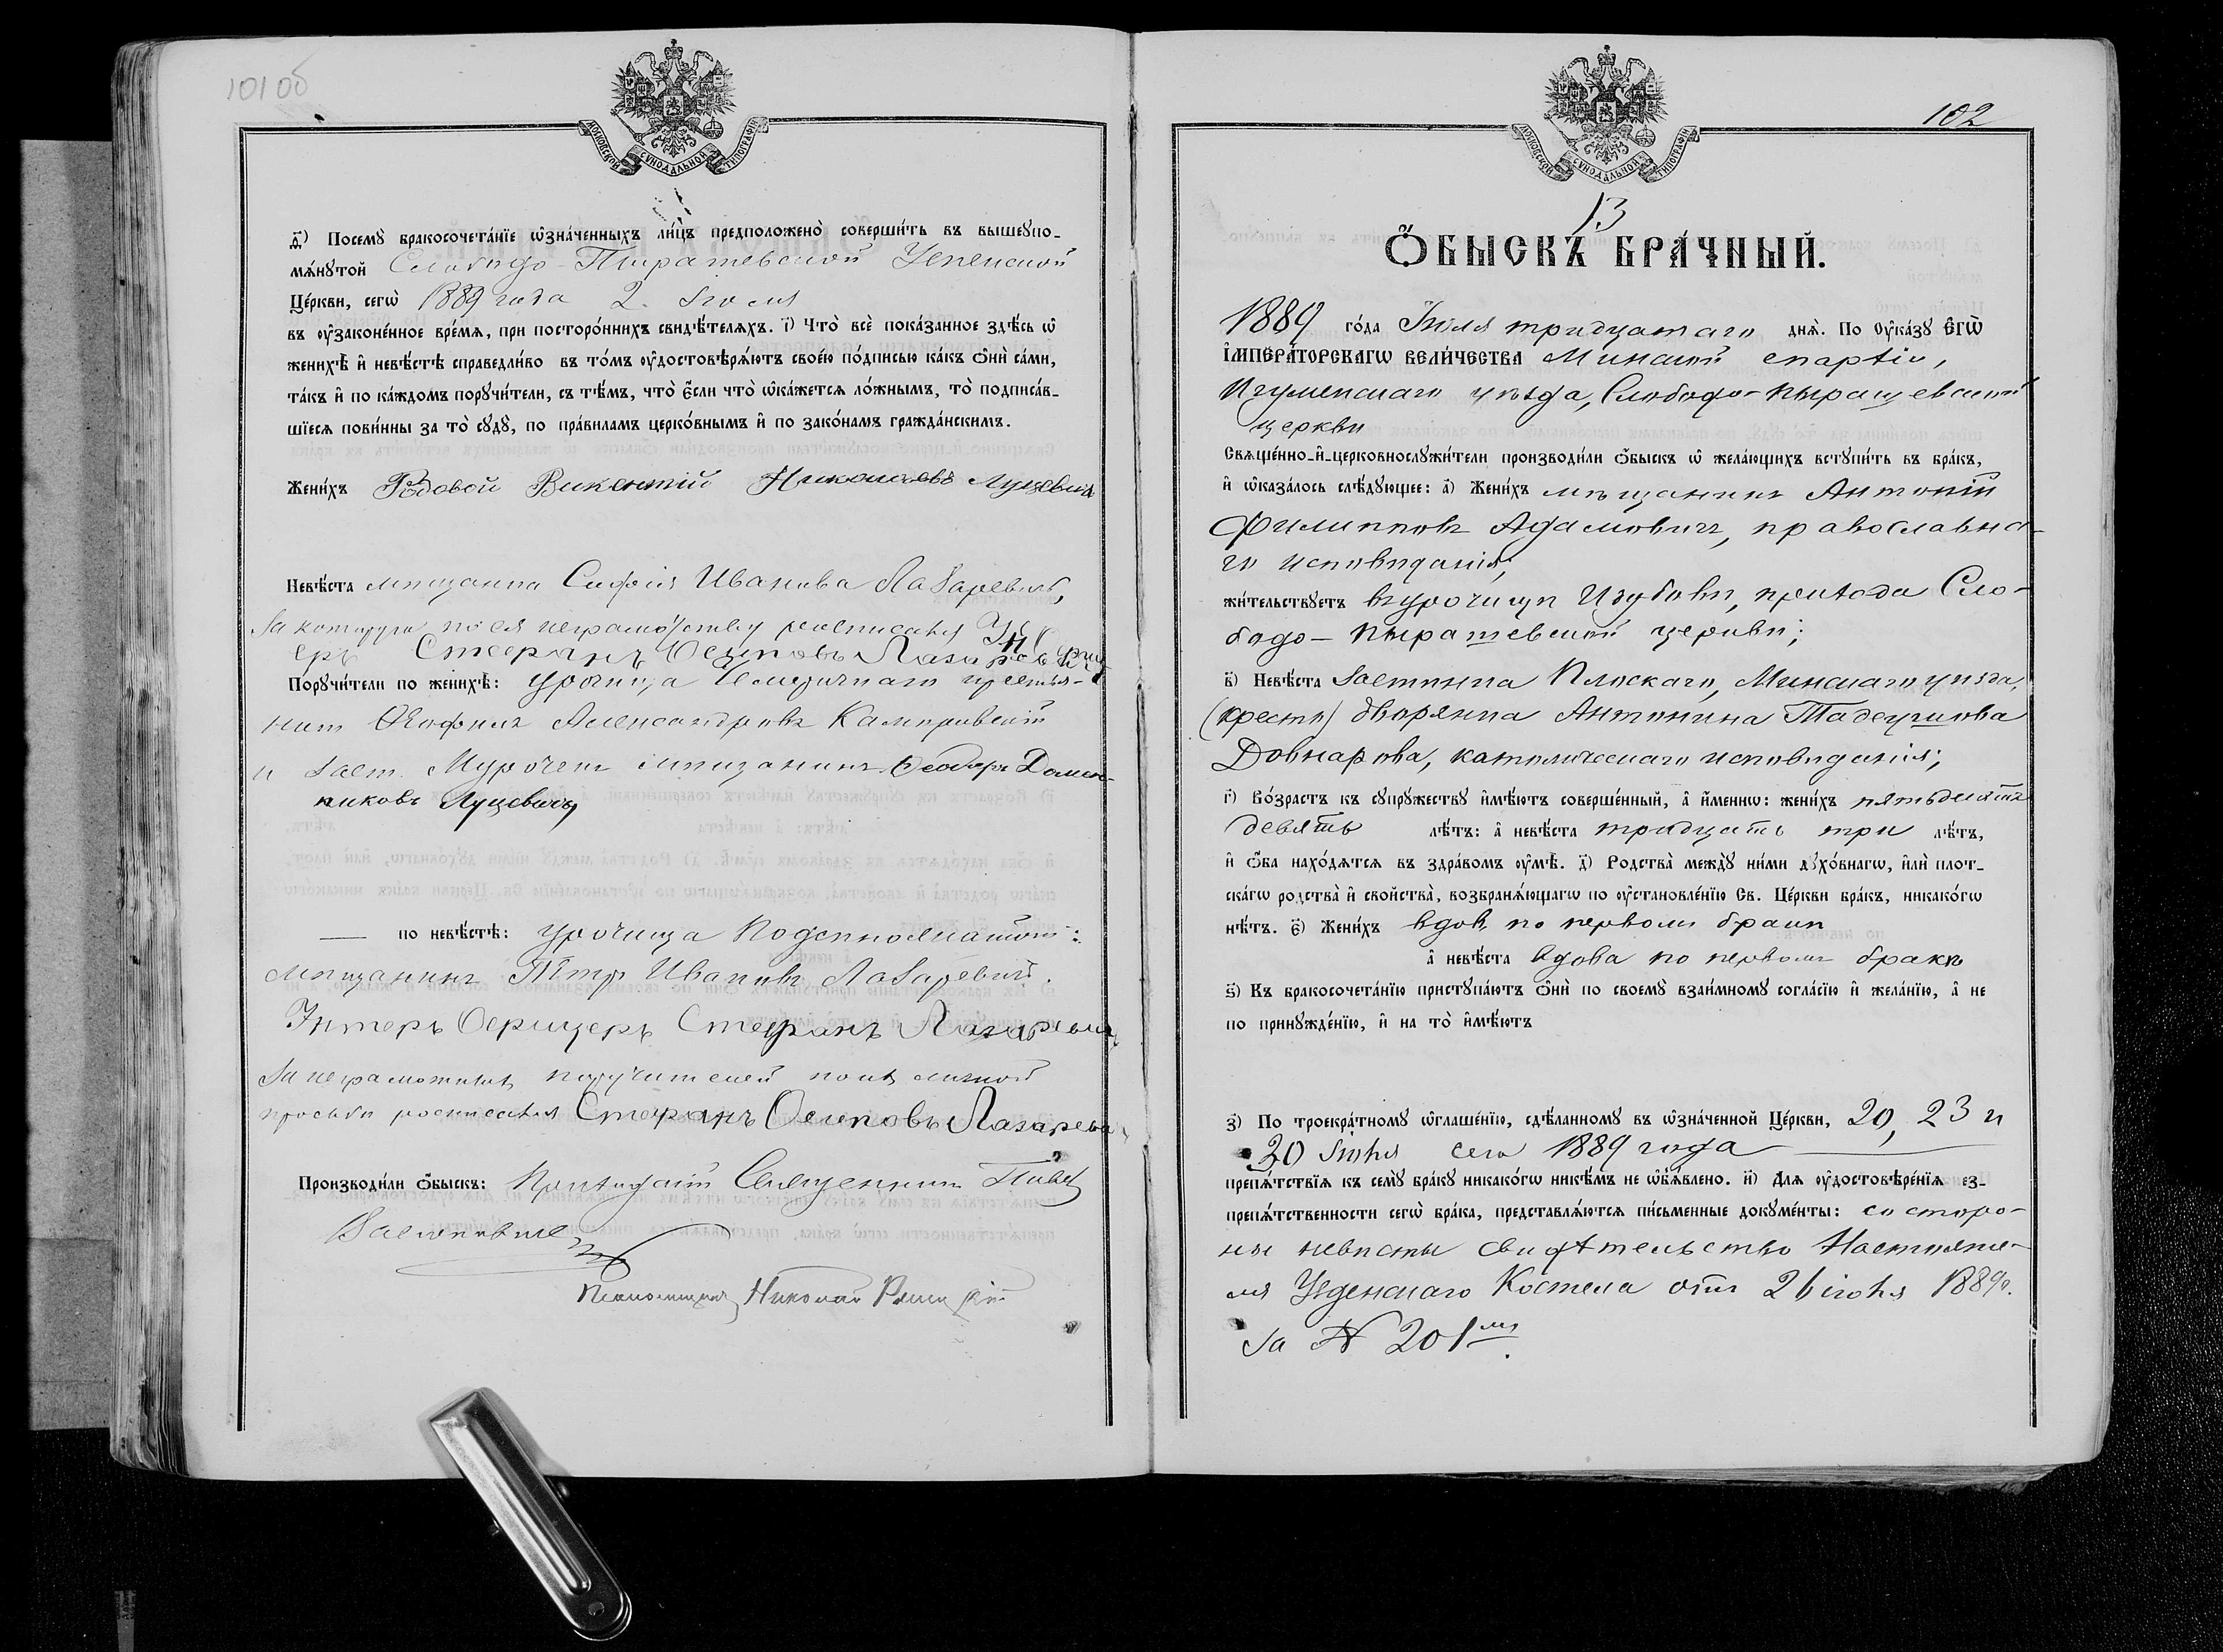 101 об
МОСКОВСКОЙ СѴНОДАЛЬНОЙ ТИПОГРАФІИ
д҃) Посемꙋ̀ бракосочета́нїе ѡ҆зна́ченныхъ ли́цъ предположено̀ соверши́ть въ вышеꙋпо-
мѧ́нꙋтой Слободо-Пырашевской Успенской
Це́ркви, сегѡ̀ 1889 года 2. Іюля
въ ᲂу҆законе́нное вре́мѧ, при посторо́ннихъ свидѣ́телѧхъ. і҃) Что̀ всѐ пока́занное здѣ́сь ѡ҆
женихѣ̀ и҆ невѣ́стѣ справедли́во въ то́мъ ᲂу҆достовѣрѧ́ютъ свое́ю по́дписью ка́къ ѻ҆нѝ са́ми,
та́къ и҆ по ка́ждомъ порꙋчи́тели, съ тѣ́мъ, что̀ є҆́сли что̀ ѡ҆ка́жетсѧ ло́жнымъ, то̀ подписа́в-
шїесѧ пови́нны за то̀ сꙋдꙋ̀, по пра́виламъ церко́внымъ и҆ по зако́намъ гражда́нскимъ.
Жени́хъ Рядовой Викентій Николаевъ Луцевичъ
Невѣ́ста мѣщанка Софія Иванова Лазаревичъ,
за которую по ея неграмотству росписался Ун.
Стефанъ Осиповъ Лазаревичъ
Порꙋчи́тели по женихѣ̀: урочища крестья-
нин Александровъ
и заст. мѣщанинъ Ѳеодоръ Домен-
никовъ Луцевичъ
— по невѣ́стѣ: урочища
мѣщанинъ Петръ Ивановъ Лазаревичъ.
Унтеръ Офицеръ Стефанъ Лазаревичъ
За неграмотныхъ поручителей по ихъ личной
просьбѣ росписался Стефанъ Осиповъ Лазаревич
Производи́ли ѻ҆́быскъ: Приходскій Священникъ Павел
Псаломщикъ Николай
102
МОСКОВСКОЙ СѴНОДАЛЬНОЙ ТИПОГРАФІИ
13
Ѻ҆БЫСКЪ БРА́ЧНЫЙ.
1889 го́да Іюля тридцатаго днѧ̀. По Оу҆ка́зꙋ Е҆ГѠ̀
І҆МПЕРА́ТОРСКАГѠ ВЕЛИ́ЧЕСТВА Минской епархіи,
Игуменскаго уѣзда, Слободо-Пырашевской
церкви
Свѧще́нно-и҆-церковнослꙋжи́тели производи́ли ѻ҆́быскъ ѡ҆ жела́ющихъ встꙋпи́ть въ бра́къ,
и҆ ѡ҆каза́лось слѣ́дꙋющее: а҃) Жени́хъ мѣщанинъ Антоній
Филипповъ Адамовичъ, православна-
го исповѣданія;
жи́тельствꙋетъ въ урочищѣ прихода Сло-
бодо-Пырашевской церкви;
в҃) Невѣ́ста застѣнка Минскаго уѣзда,
дворянка Антонина Тадеушова
Довнарова, католическаго исповѣданія;
г҃) Во́зрастъ къ сꙋпрꙋ́жествꙋ и҆мѣ́ютъ соверше́нный, а҆ и҆́меннѡ: жени́хъ пятьдесятъ
девять лѣ́тъ: а҆ невѣ́ста тридцать три лѣ́тъ,
и҆ ѻ҆́ба нахо́дѧтсѧ въ здра́вомъ ᲂу҆мѣ̀. д҃) Родства̀ междꙋ̀ ни́ми дꙋхо́внагѡ, и҆лѝ плот-
ска́гѡ родства̀ и҆ свойства̀, возбранѧ́ющагѡ по ᲂу҆становле́нїю Св. Це́ркви бра́къ, никако́гѡ
нѣ́тъ. є҃) Жени́хъ вдов. по первомъ бракѣ
а҆ невѣ́ста вдова по первомъ бракѣ
ѕ҃) Къ бракосочета́нїю пристꙋпа́ютъ ѻ҆нѝ по своемꙋ̀ взаи́мномꙋ согла́сїю и҆ жела́нїю, а҆ не
по принꙋжде́нїю, и҆ на то̀ и҆мѣ́ютъ
з҃) По троекра́тномꙋ ѡ҆глаше́нїю, сдѣ́ланномꙋ въ ѡ҆зна́ченной Це́ркви, 20, 23 и
30 Іюля сего 1889 года
препѧ́тствїѧ къ семꙋ̀ бра́кꙋ никако́гѡ никѣ́мъ не ѡ҆б̾ѧ́влено. и҃) Длѧ ᲂу҆достовѣре́нїѧ ез-
препѧ́тственности сегѡ̀ бра́ка, представлѧ́ютсѧ пи́сьменные докꙋме́нты: со сторо-
ны невѣсты свидѣтельство Настояте-
ля Узденскаго Костела отъ 26 іюля 1889 г.
за № 201мъ.